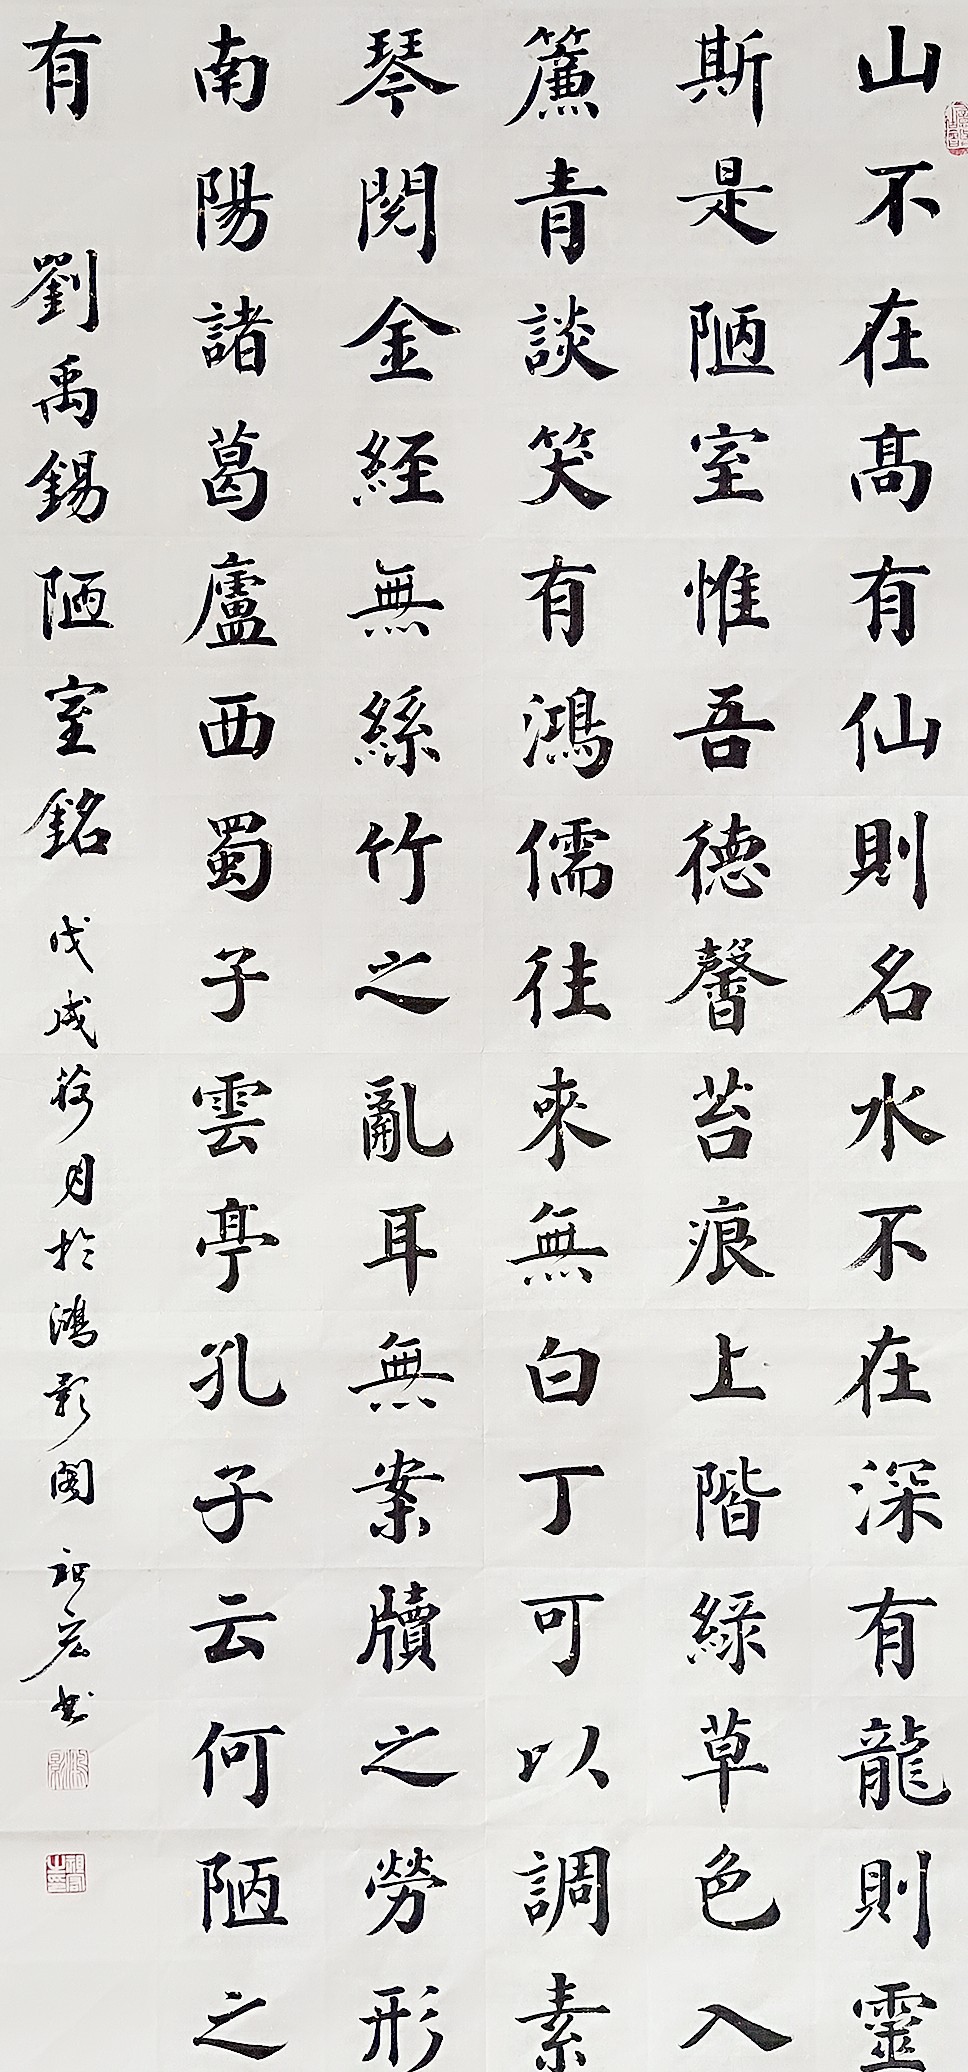 山不在高有仙則名水不在深有龍則靈
斯是陋室惟吾德馨苔痕上階綠草色入
簾青談笑有鴻儒往來無白丁可以調素
琴閱金經無絲竹之亂耳無案牘之勞形
南陽諸葛廬西蜀子雲亭孔子云何陋之
有 劉禹錫陋室銘 戊戌荷月於鴻影閣 祖宏書